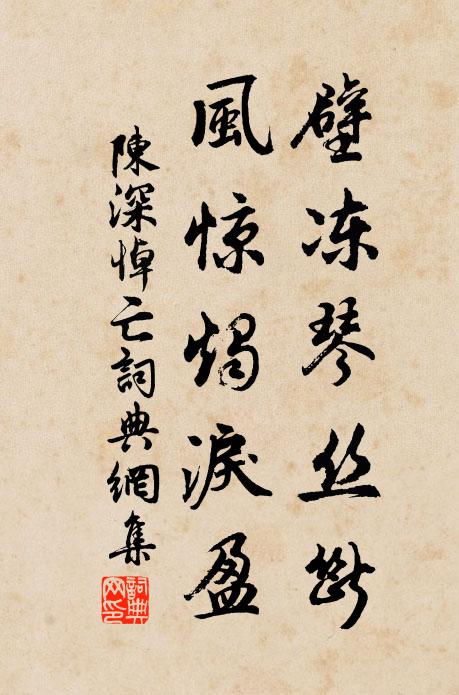 壁冻琴丝断
風惊燭淚盈
陳深悼亡詞典網集
詞典
網印